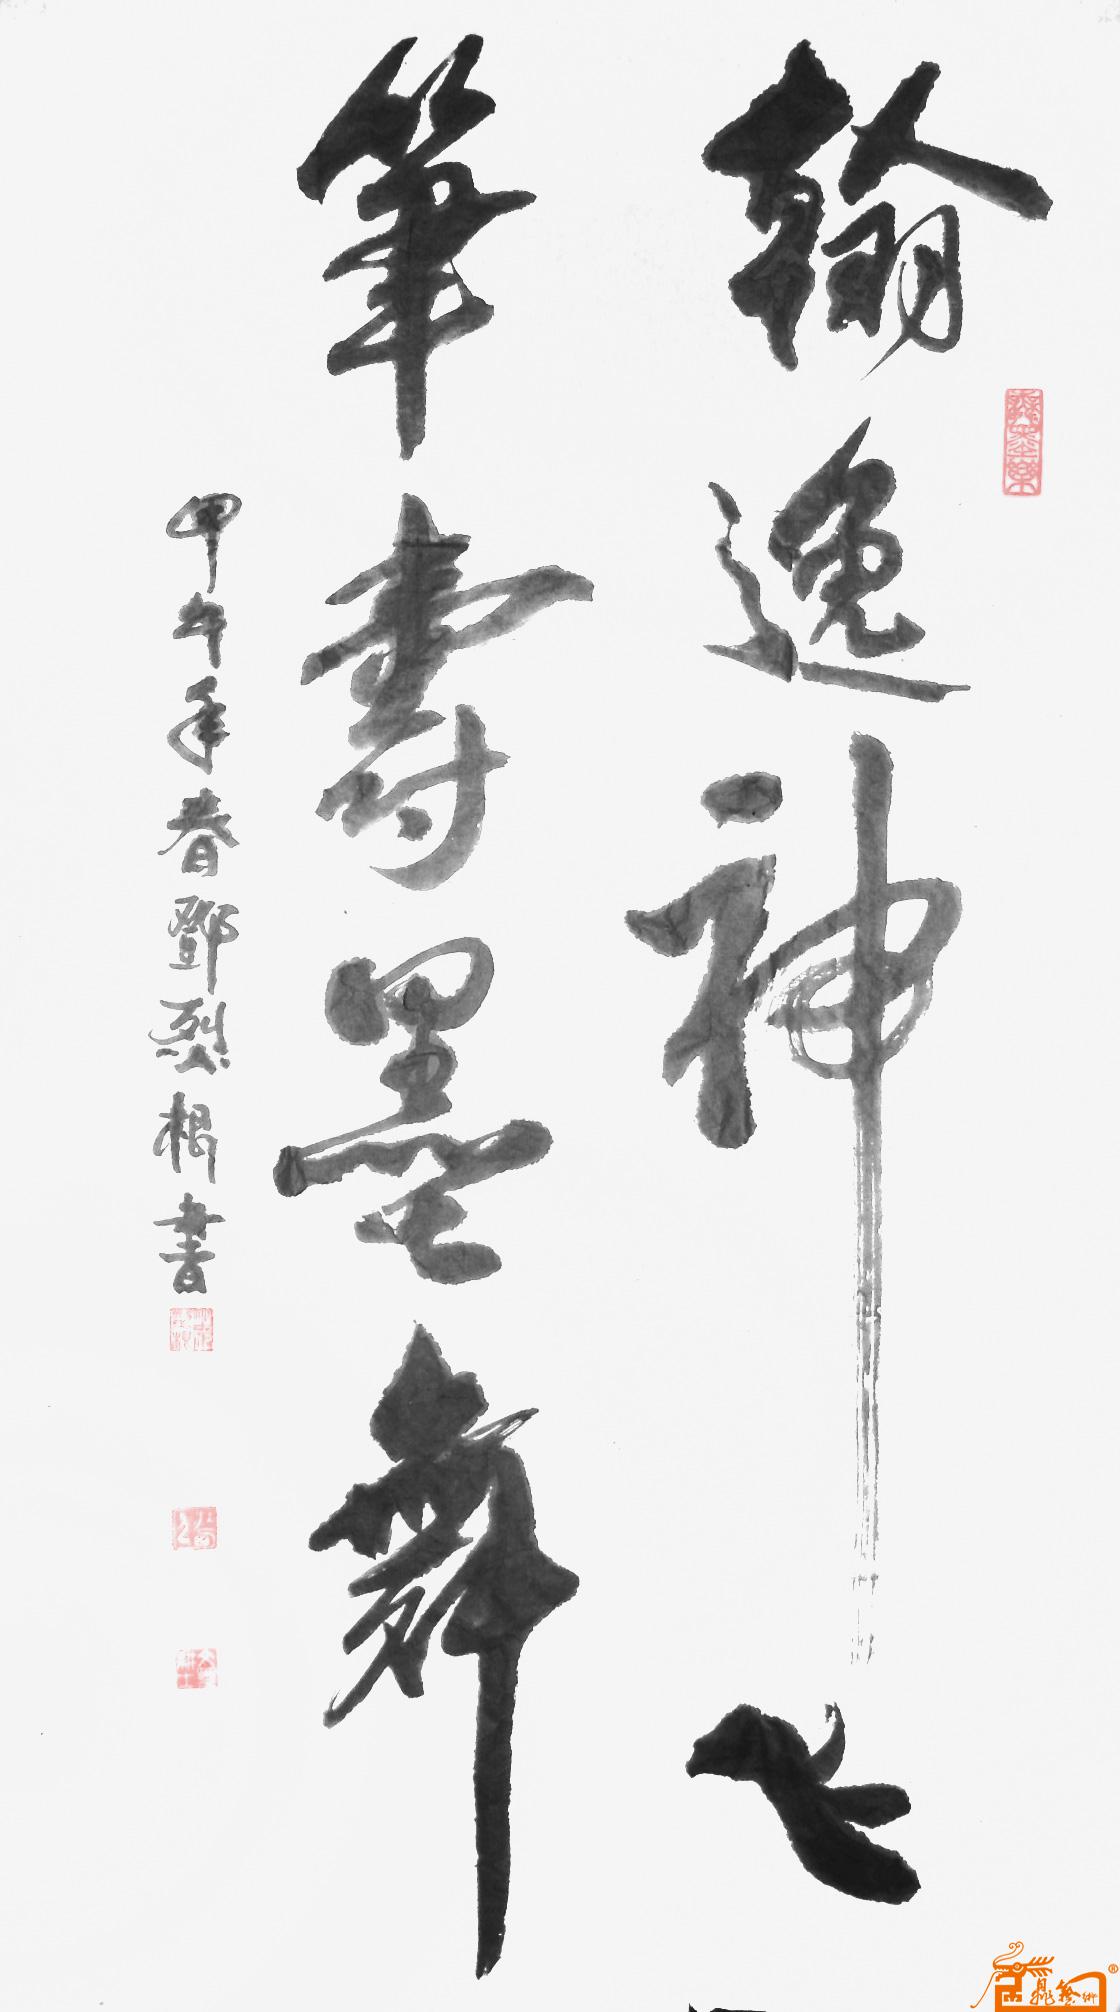 翰逸神飞
筆壽墨舞
甲午年春鄧烈根書